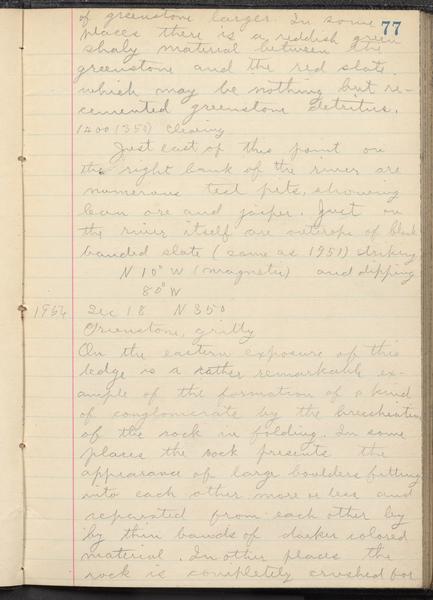 of greenstone larger. In some
77
places there is a reddish green
shaly material between the
greenstone and the red slate
which may be nothing but re-
cemented greenstone detritus.
1400 (350) Clearing
Just east of this point on
the right bank of the river are
numerous test pits, showing
lean ore and jasper. Just in
the river itself are outcrops of black
banded slate (same as 1951) striking
N 10° W (magnetic) and dipping
80° W
1954 Sec 18 N 350
Greenstone, gritty
On the eastern exposure of this
ledge is a rather remarkable ex-
ample of the formation of a kind
of conglomerate by the brecciation
of the rock in folding. In some
places the rock presents the
appearance of large boulders fitting
into each other more or less and
separated from each other by
by thin bands of darker colored
material. In other places the
rock is completely crushed for